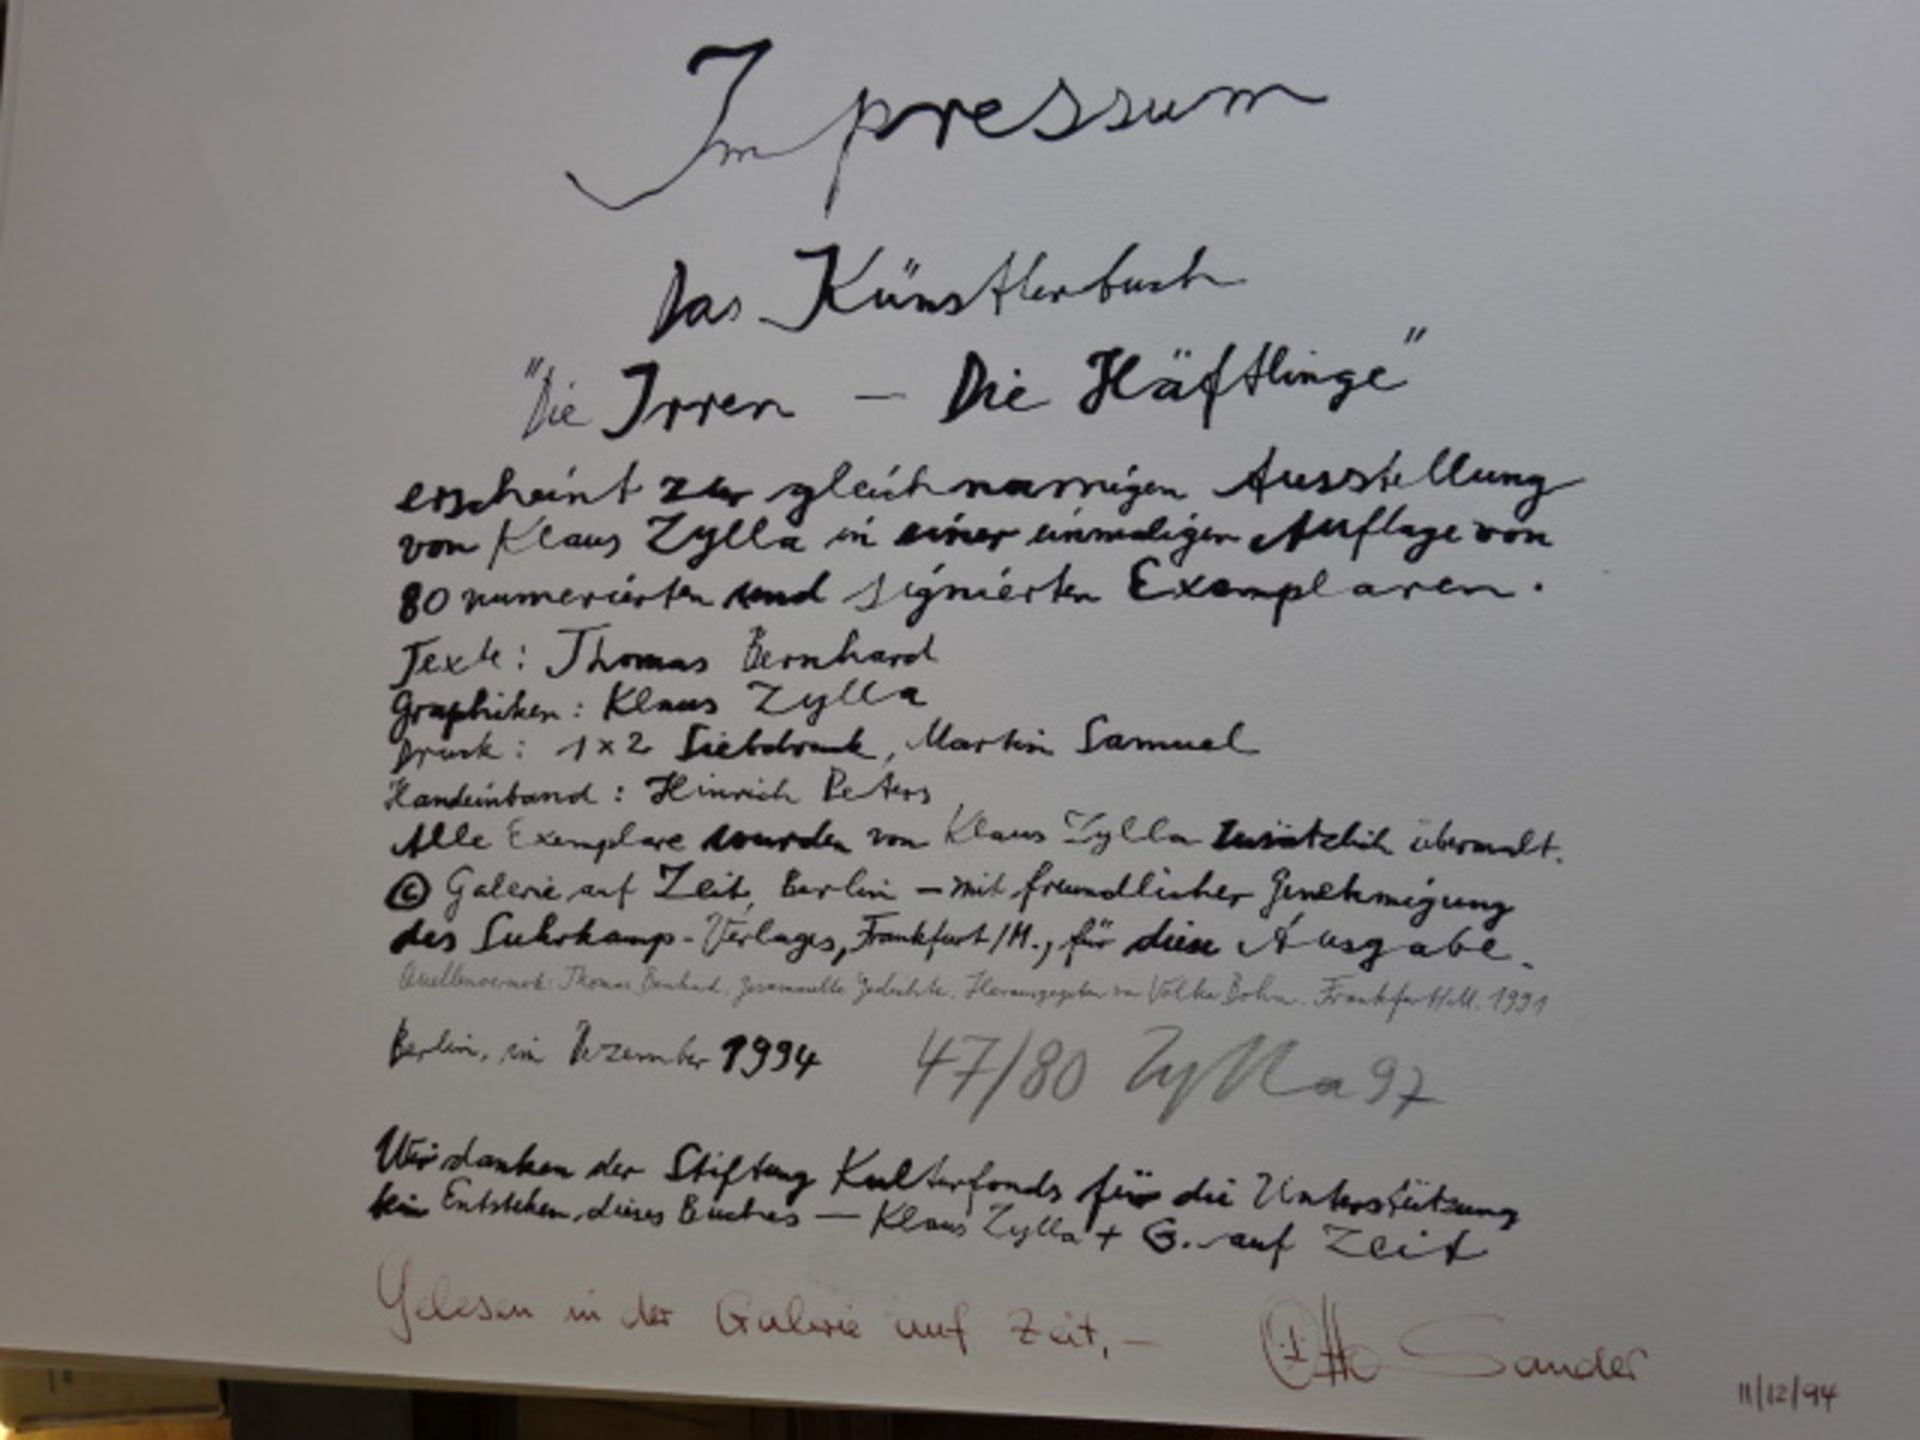 Impressum
Das Künstlerbuch
"Die Irren — Die Häftlinge"
erscheint zur gleichnamigen Ausstellung
von Klaus Zylla in einer einmaligen Auflage von
80 numerierten und signierten Exemplaren.
Texte: Thomas Bernhard
Graphiken: Klaus Zylla
Druck: 1x2 Siebdruck, Martin Samuel
Handeinband: Hinrich Peters
Alle Exemplare wurden von Klaus Zylla zusätzlich übermalt.
© Galerie auf Zeit, Berlin – mit freundlicher Genehmigung
des Suhrkamp-Verlages, Frankfurt/M., für diese Ausgabe.
Quellenvermerk: Thomas Bernhard, Gesammelte Gedichte. Herausgegeben von Volker Bohn. Frankfurt/M. 1991
Berlin, im Dezember 1994
47/80 Zylla 97
Wir danken der Stiftung Kulturfonds für die Unterstützung
beim Entstehen dieses Buches — Klaus Zylla + G. auf Zeit
Gelesen in der Galerie auf Zeit, – Otto Sander
11/12/94